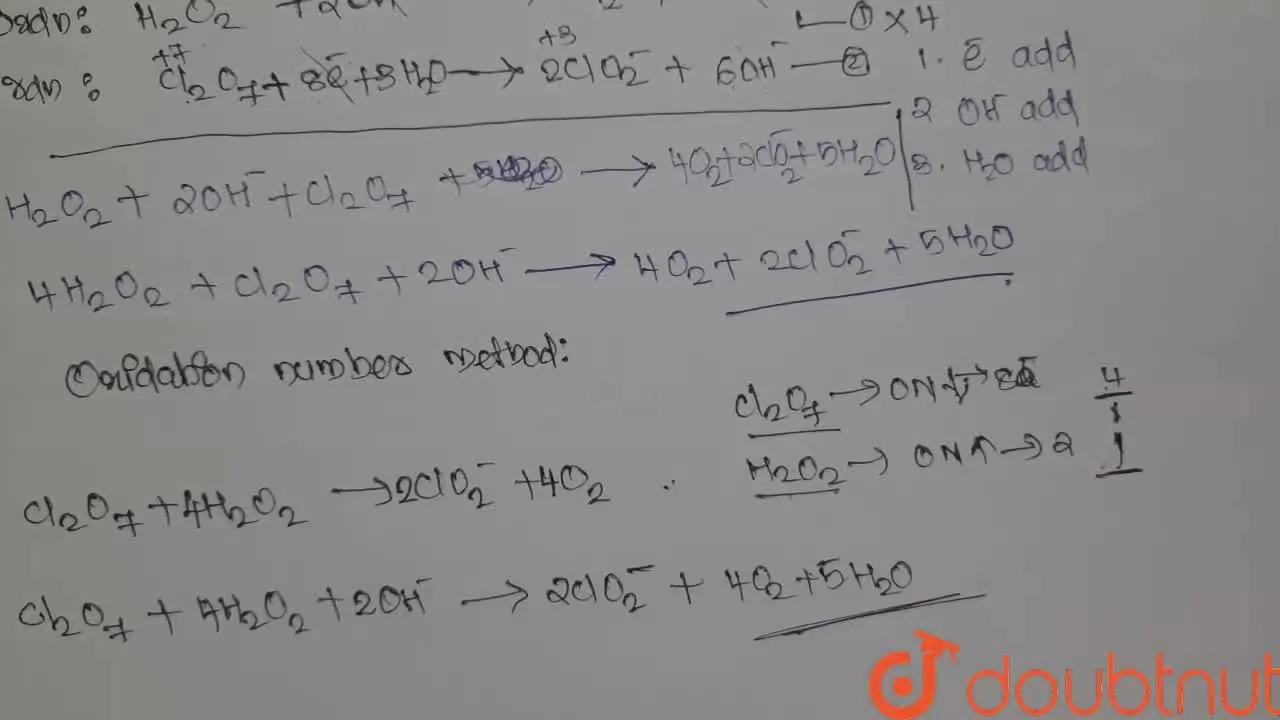 H₂O₂ + 2OH
①×4
+7 +3
Cl₂O₇ + 8e̅ + 3H₂O → 2ClO₂⁻ + 6OH⁻ —② 1. e̅ add
2 OH⁻ add
H₂O₂ + 2OH⁻ + Cl₂O₇ + → 4O₂ + 2ClO₂⁻ + 5H₂O 3. H₂O add
4H₂O₂ + Cl₂O₇ + 2OH⁻ → 4O₂ + 2ClO₂⁻ + 5H₂O
Oxidation number method:
Cl₂O₇ → ON↓ → 8 4
1
H₂O₂ → ON↑ → 2 1
Cl₂O₇ + 4H₂O₂ → 2ClO₂⁻ + 4O₂
Cl₂O₇ + 4H₂O₂ + 2OH⁻ → 2ClO₂⁻ + 4O₂ + 5H₂O
doubtnut